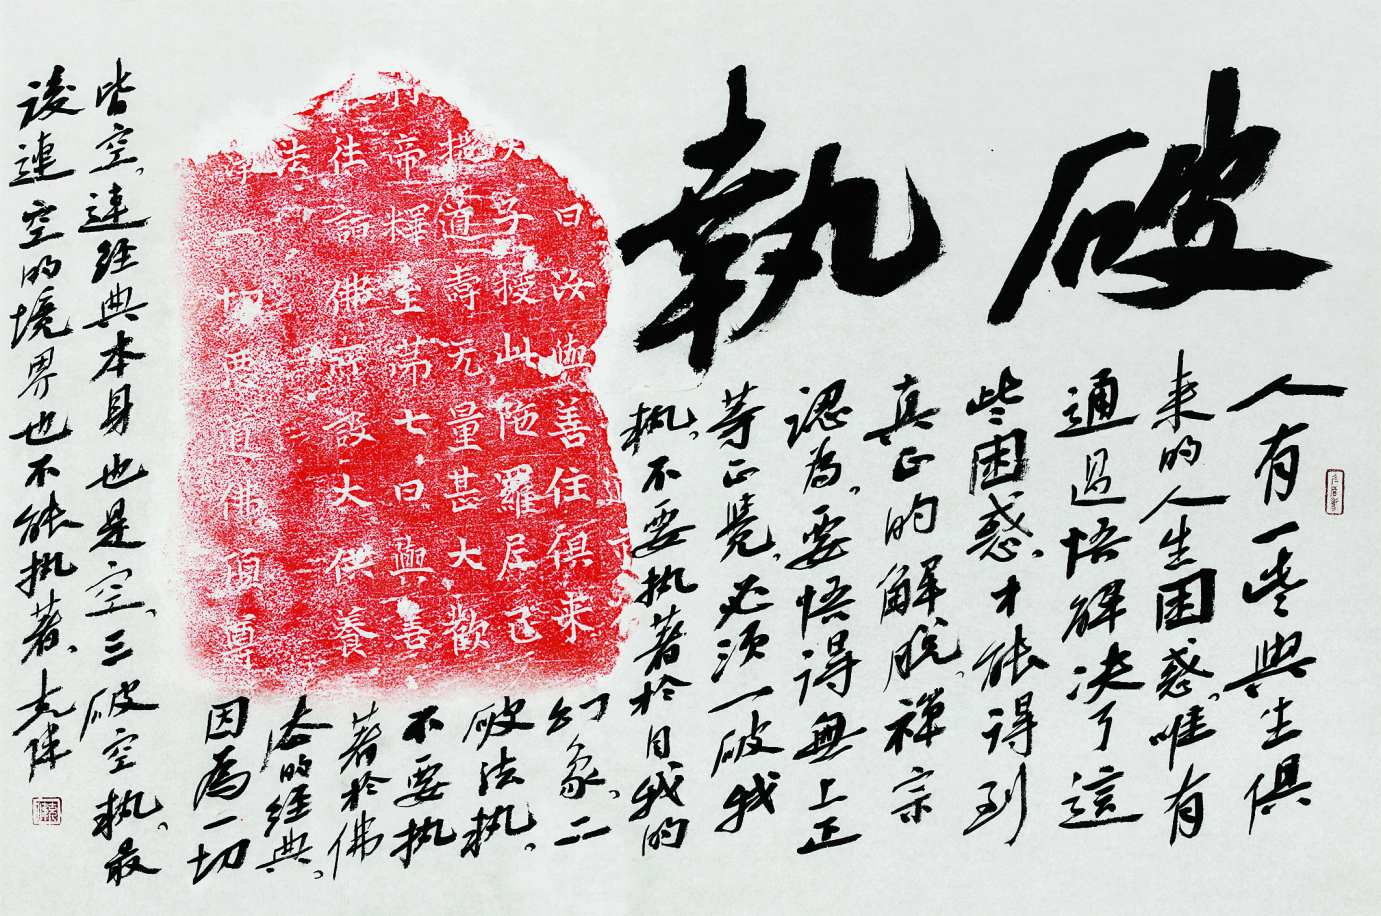 破執
人有一些與生俱
来的人生困惑，唯有
通過悟解決了這
些困惑，才能得到
真正的解脫，禅宗
認為，要悟得無上正
等正覺，必须一破我
執，不要执著於自我的
幻象，二
破法執，
不要执
著於佛
的經典，
因為一切
皆空，連経典本身也是空，三破空執，最
後連空的境界也不能执著。
曰汝與善住俱来
天子授此陀羅尼已
道壽无量甚大歡
帝釋至第七日與善
往詣佛所設大供養
法
淨一切惡道佛頂尊